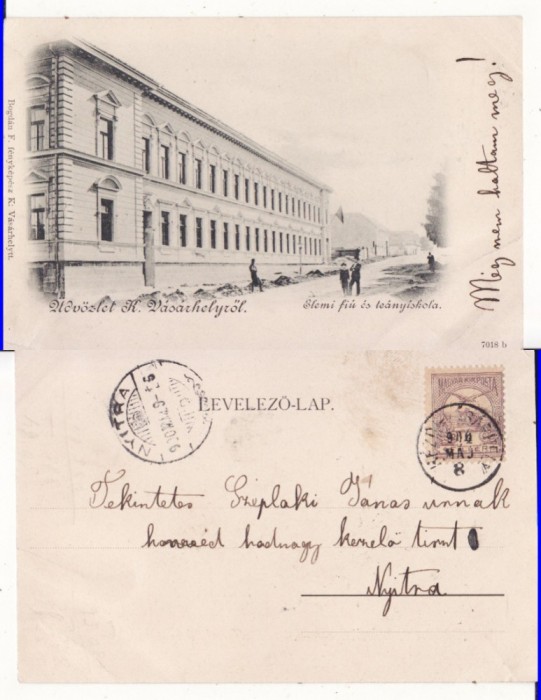 Bogdán F. fényképész K. Vásárhelyn.
Üdvözlet K. Vásárhelyről.
Elemi fiú és leányiskola.
Még nem haltam meg!
7018 b
LEVELEZŐ-LAP.
NYITRA
MAGYAR KIR. POSTA
900
MÁJ
8
Tekintetes Széplaki János urnak
honvéd hadnagy kezelő tiszt
Nyitra